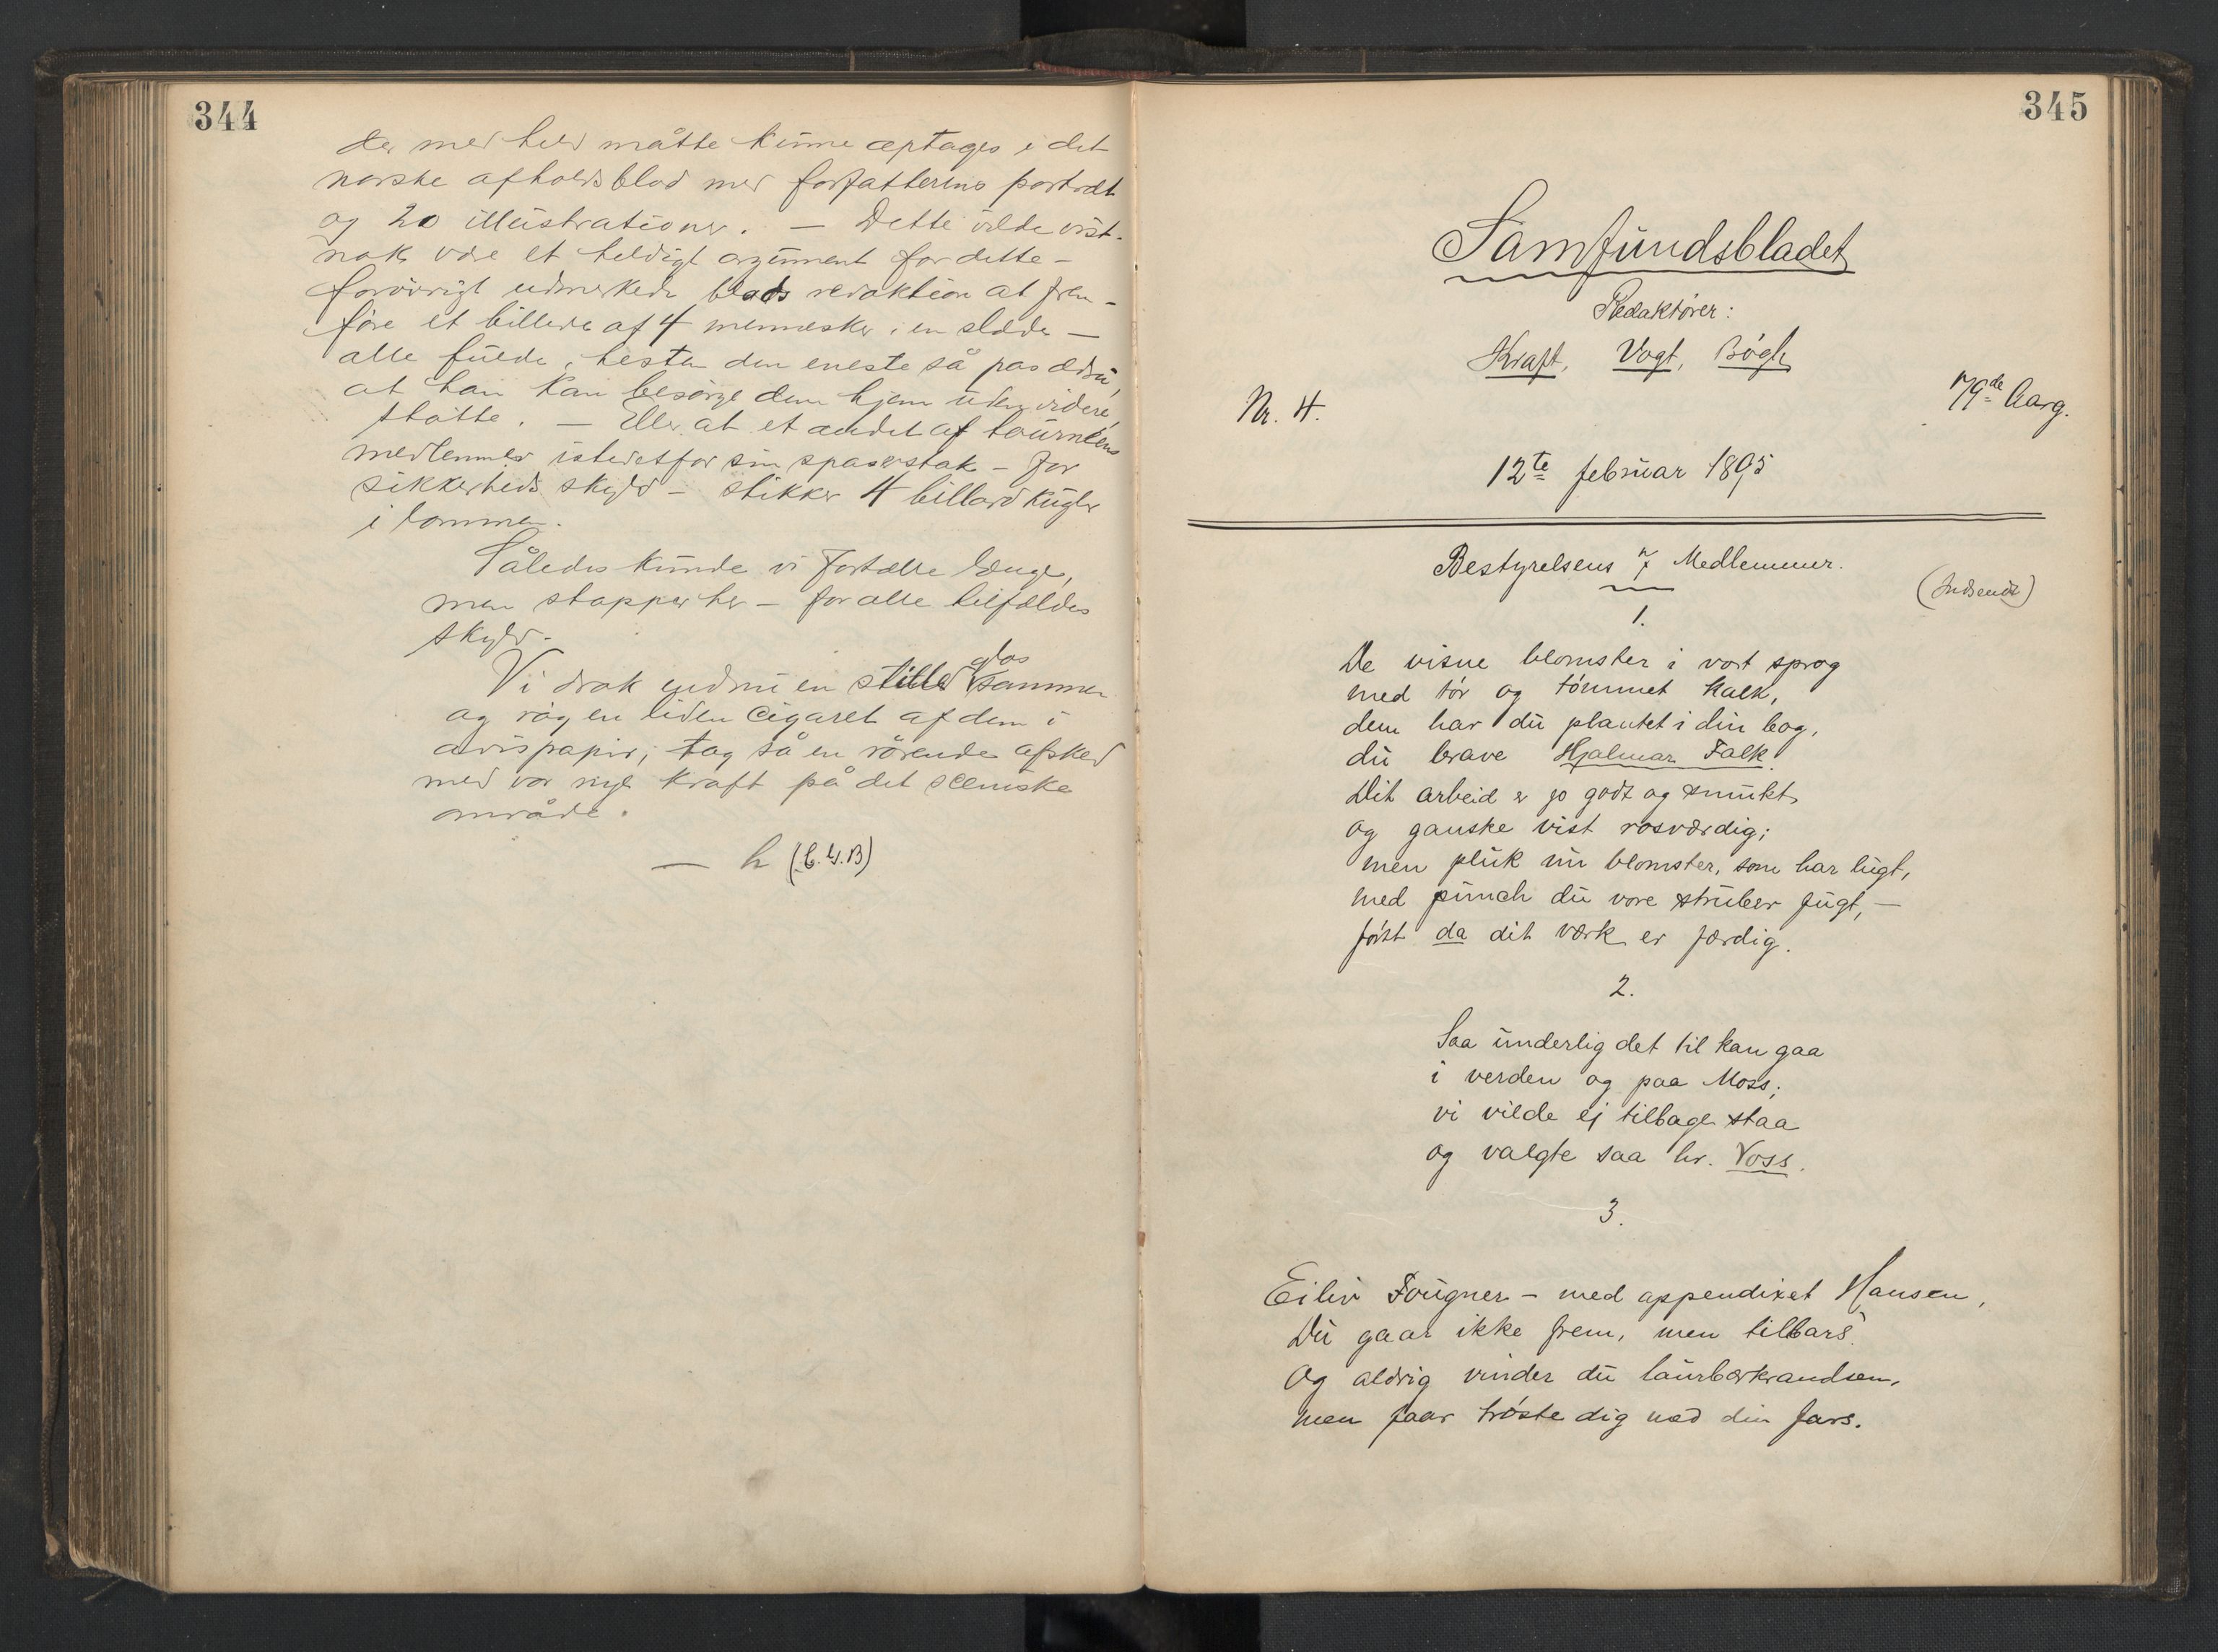 344
der med held måtte kunne optages i det
norske afholdsblad med forfatterens portræt
og 20 illustrationer. — Dette vilde vist-
nok være et heldigt argument for dette –
forøvrigt udmerkede blads redaktion at frem-
føre et billede af 4 mennesker i en slæde —
alle fulde, hesten den eneste så pas ædru,
at han kan besørge dem hjem uden videre
støtte. — Eller at et andet af tournéens
medlemmer istedetfor sin spaserstok – for
sikkerheds skyld – stikker 4 billardkugler
i lommen.
Således kunde vi fortælle længe,
men stopper her – for alle tilfældes
skyld.
Vi drak endnu en stille glas sammen
og røg en liden cigaret af dem i
avispapir; tog så en rørende afsked
med vor nye kraft på det sceniske
område.
— h (C.G.B)
345
Samfundsbladet
Redaktører:
Kraft, Vogt, Bøgh
Nr. 4.
79de Aarg.
12te februar 1895
Bestyrelsens 7 Medlemmer.
(Indsendt)
1.
De visne blomster i vort sprog
med tör og tömmet kalk,
dem har du plantet i din bog,
du brave Hjalmar Falk.
Dit arbeid er jo godt og smukt
og ganske vist rosværdig;
men pluk nu blomster, som har lugt,
med punch du vore struber fugt, —
först da dit værk er færdig.
2.
Saa underlig det til kan gaa
i verden og paa Moss;
vi vilde ej tilbage staa
og valgte saa hr. Voss.
3.
Eiliv Fougner – med appendixet Hansen,
Du gaar ikke frem, men tilbars.
Og aldrig vinder du laurbærkrandsen,
men faar trøste dig med din fars.